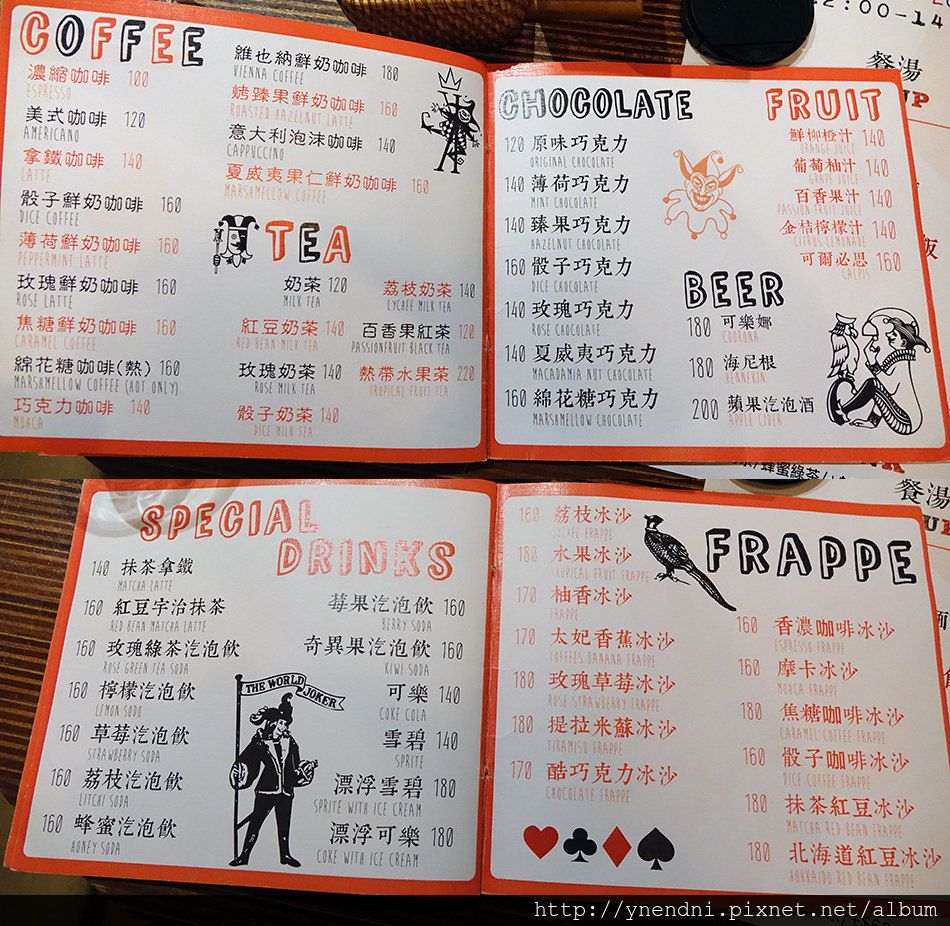 COFFEE
濃縮咖啡 100
ESPRESSO
美式咖啡 120
AMERICANO
拿鐵咖啡 140
LATTE
骰子鮮奶咖啡 160
DICE COFFEE
薄荷鮮奶咖啡 160
PEPPERMINT LATTE
玫瑰鮮奶咖啡 160
ROSE LATTE
焦糖鮮奶咖啡 160
CARAMEL COFFEE
綿花糖咖啡(熱) 160
MARSHMELLOW COFFEE (HOT ONLY)
巧克力咖啡 140
MOHCA
維也納鮮奶咖啡 180
VIENNA COFFEE
烤臻果鮮奶咖啡 160
ROASTED HAZELNUT LATTE
意大利泡沫咖啡 140
CAPPUCCINO
夏威夷果仁鮮奶咖啡 160
MARSHMELLOW COFFEE
TEA
奶茶 120
MILK TEA
紅豆奶茶 140
RED BEAN MILK TEA
玫瑰奶茶 140
ROSE MILK TEA
骰子奶茶 140
DICE MILK TEA
荔枝奶茶 140
LYCHEE MILK TEA
百香果紅茶 120
PASSIONFRUIT BLACK TEA
熱帶水果茶 220
TROPICAL FRUIT TEA
CHOCOLATE
120 原味巧克力
ORIGINAL CHOCOLATE
140 薄荷巧克力
MINT CHOCOLATE
140 臻果巧克力
HAZELNUT CHOCOLATE
160 骰子巧克力
DICE CHOCOLATE
140 玫瑰巧克力
ROSE CHOCOLATE
140 夏威夷巧克力
MACADAMIA NUT CHOCOLATE
160 綿花糖巧克力
MARSHMELLOW CHOCOLATE
FRUIT
鮮柳橙汁 140
ORANGE JUICE
葡萄柚汁 140
GRAPE JUICE
百香果汁 140
PASSION FRUIT JUICE
金桔檸檬汁 140
CITRUS LEMONADE
可爾必思 160
CALPIS
BEER
180 可樂娜
COORONA
180 海尼根
HENNERIN
200 蘋果汽泡酒
APPLE CIDER
22:00-14
餐湯
UP
飯
蜂蜜綠茶
SPECIAL DRINKS
140 抹茶拿鐵
MATCHA LATTE
160 紅豆宇治抹茶
RED BEAN MATCHA LATTE
160 玫瑰綠茶汽泡飲
ROSE GREEN TEA SODA
160 檸檬汽泡飲
LEMON SODO
160 草莓汽泡飲
STRAWBERRY SODA
160 荔枝汽泡飲
LITCHI SODA
160 蜂蜜汽泡飲
HONEY SODA
莓果汽泡飲 160
BERRY SODA
奇異果汽泡飲 160
KIWI SODA
可樂 140
COKE COLA
雪碧 140
SPRITE
漂浮雪碧 180
SPRITE WITH ICE CREAM
漂浮可樂 180
COKE WITH ICE CREAM
THE WORLD JOKER
FRAPPE
160 荔枝冰沙
FRAPPE
180 水果冰沙
TROPICAL FRUIT FRAPPE
170 柚香冰沙
FRAPPE
170 太妃香蕉冰沙
TOFFEES BANANA FRAPPE
180 玫瑰草莓冰沙
ROSE STRAWBERRY FRAPPE
180 提拉米蘇冰沙
TIRAMISU FRAPPE
170 酷巧克力冰沙
CHOCOLATE FRAPPE
160 香濃咖啡冰沙
ESPRESSO FRAPPE
160 摩卡冰沙
MOHCA FRAPPE
180 焦糖咖啡冰沙
CARAMEL COFFEE FRAPPE
160 骰子咖啡冰沙
DICE COFFEE FRAPPE
180 抹茶紅豆冰沙
MATCHA RED BEAN FRAPPE
180 北海道紅豆冰沙
HOKKAIDO RED BEAN FRAPPE
餐湯
http://ynendni.pixnet.net/album